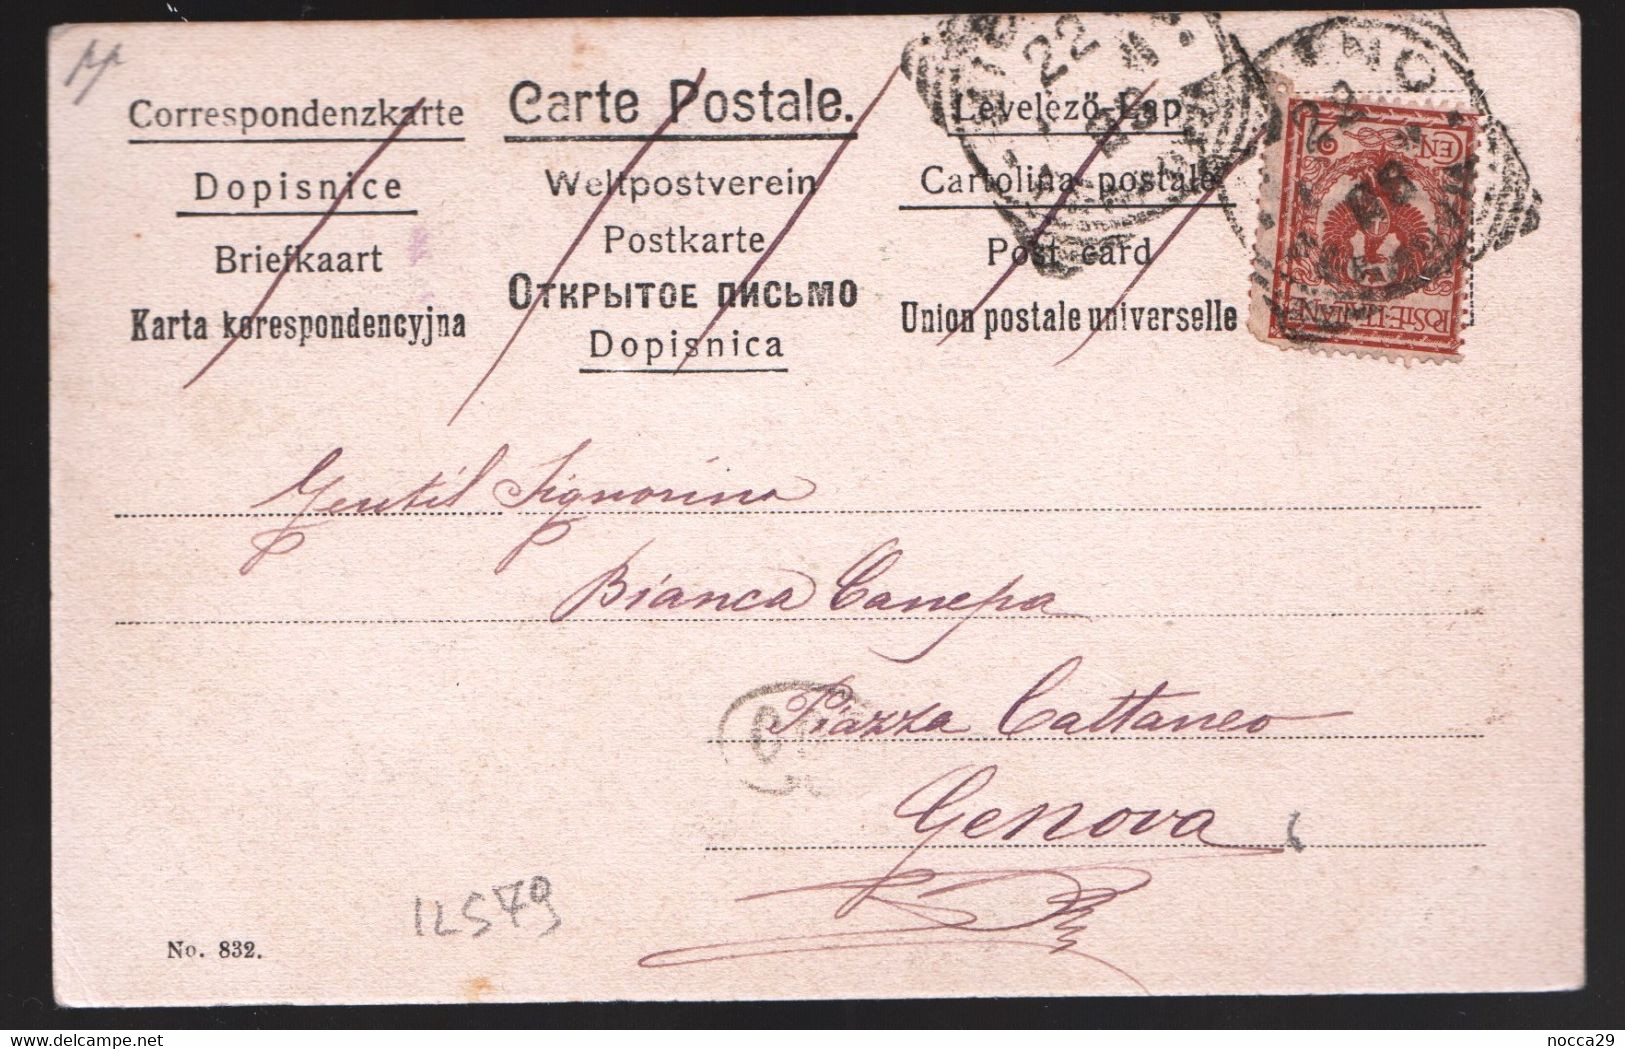 Correspondenzkarte
Dopisnice
Briefkaart
Karta korespondencyjna
Carte Postale.
Weltpostverein
Postkarte
Открытое письмо
Dopisnica
Levelező-Lap
Cartolina postale
Post card
Union postale universelle
CEN 2
POSTE ITALIANE
22
22
Gentil Signorina
Bianca Canepa
Piazza Cattaneo
Genova
12579
No. 832.
nocca29